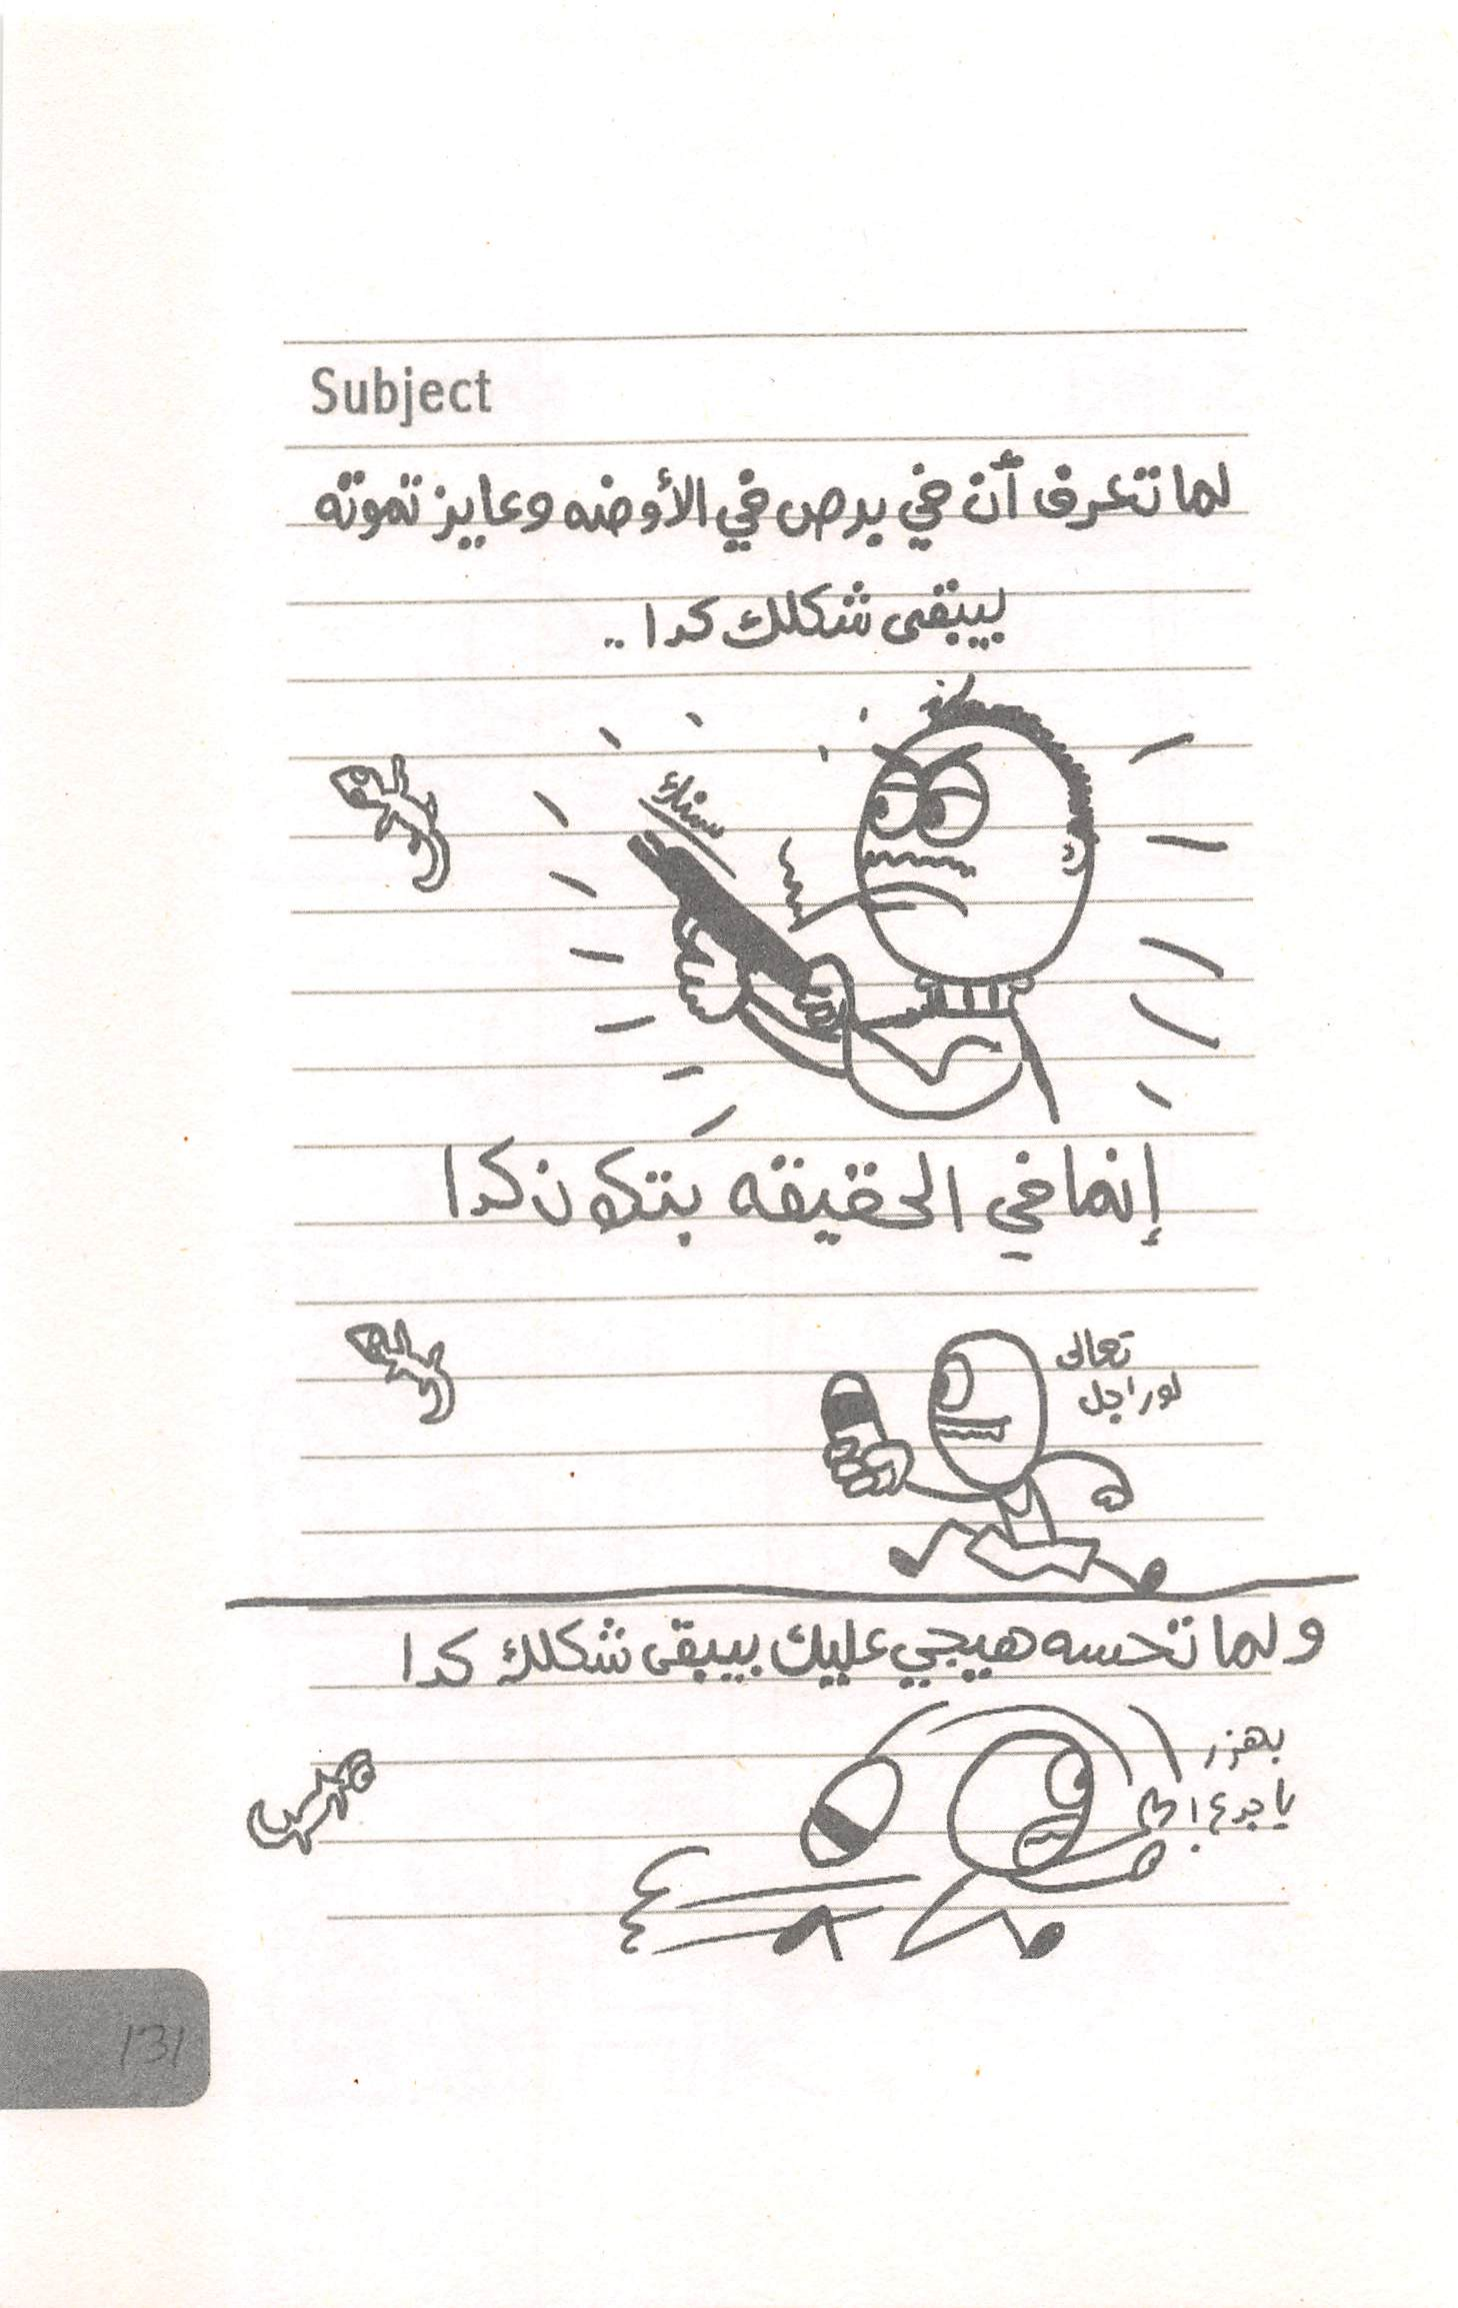 Subject
لما تعرف أن في برص في الأوضه وعايز تموته
بيبقى شكلك كدا ..
إنما في الحقيقه بتكون كدا
تعالى
لو راجل
ولما تحسه هييجي عليك بيبقى شكلك كدا
بهزر
يا جدع!
131